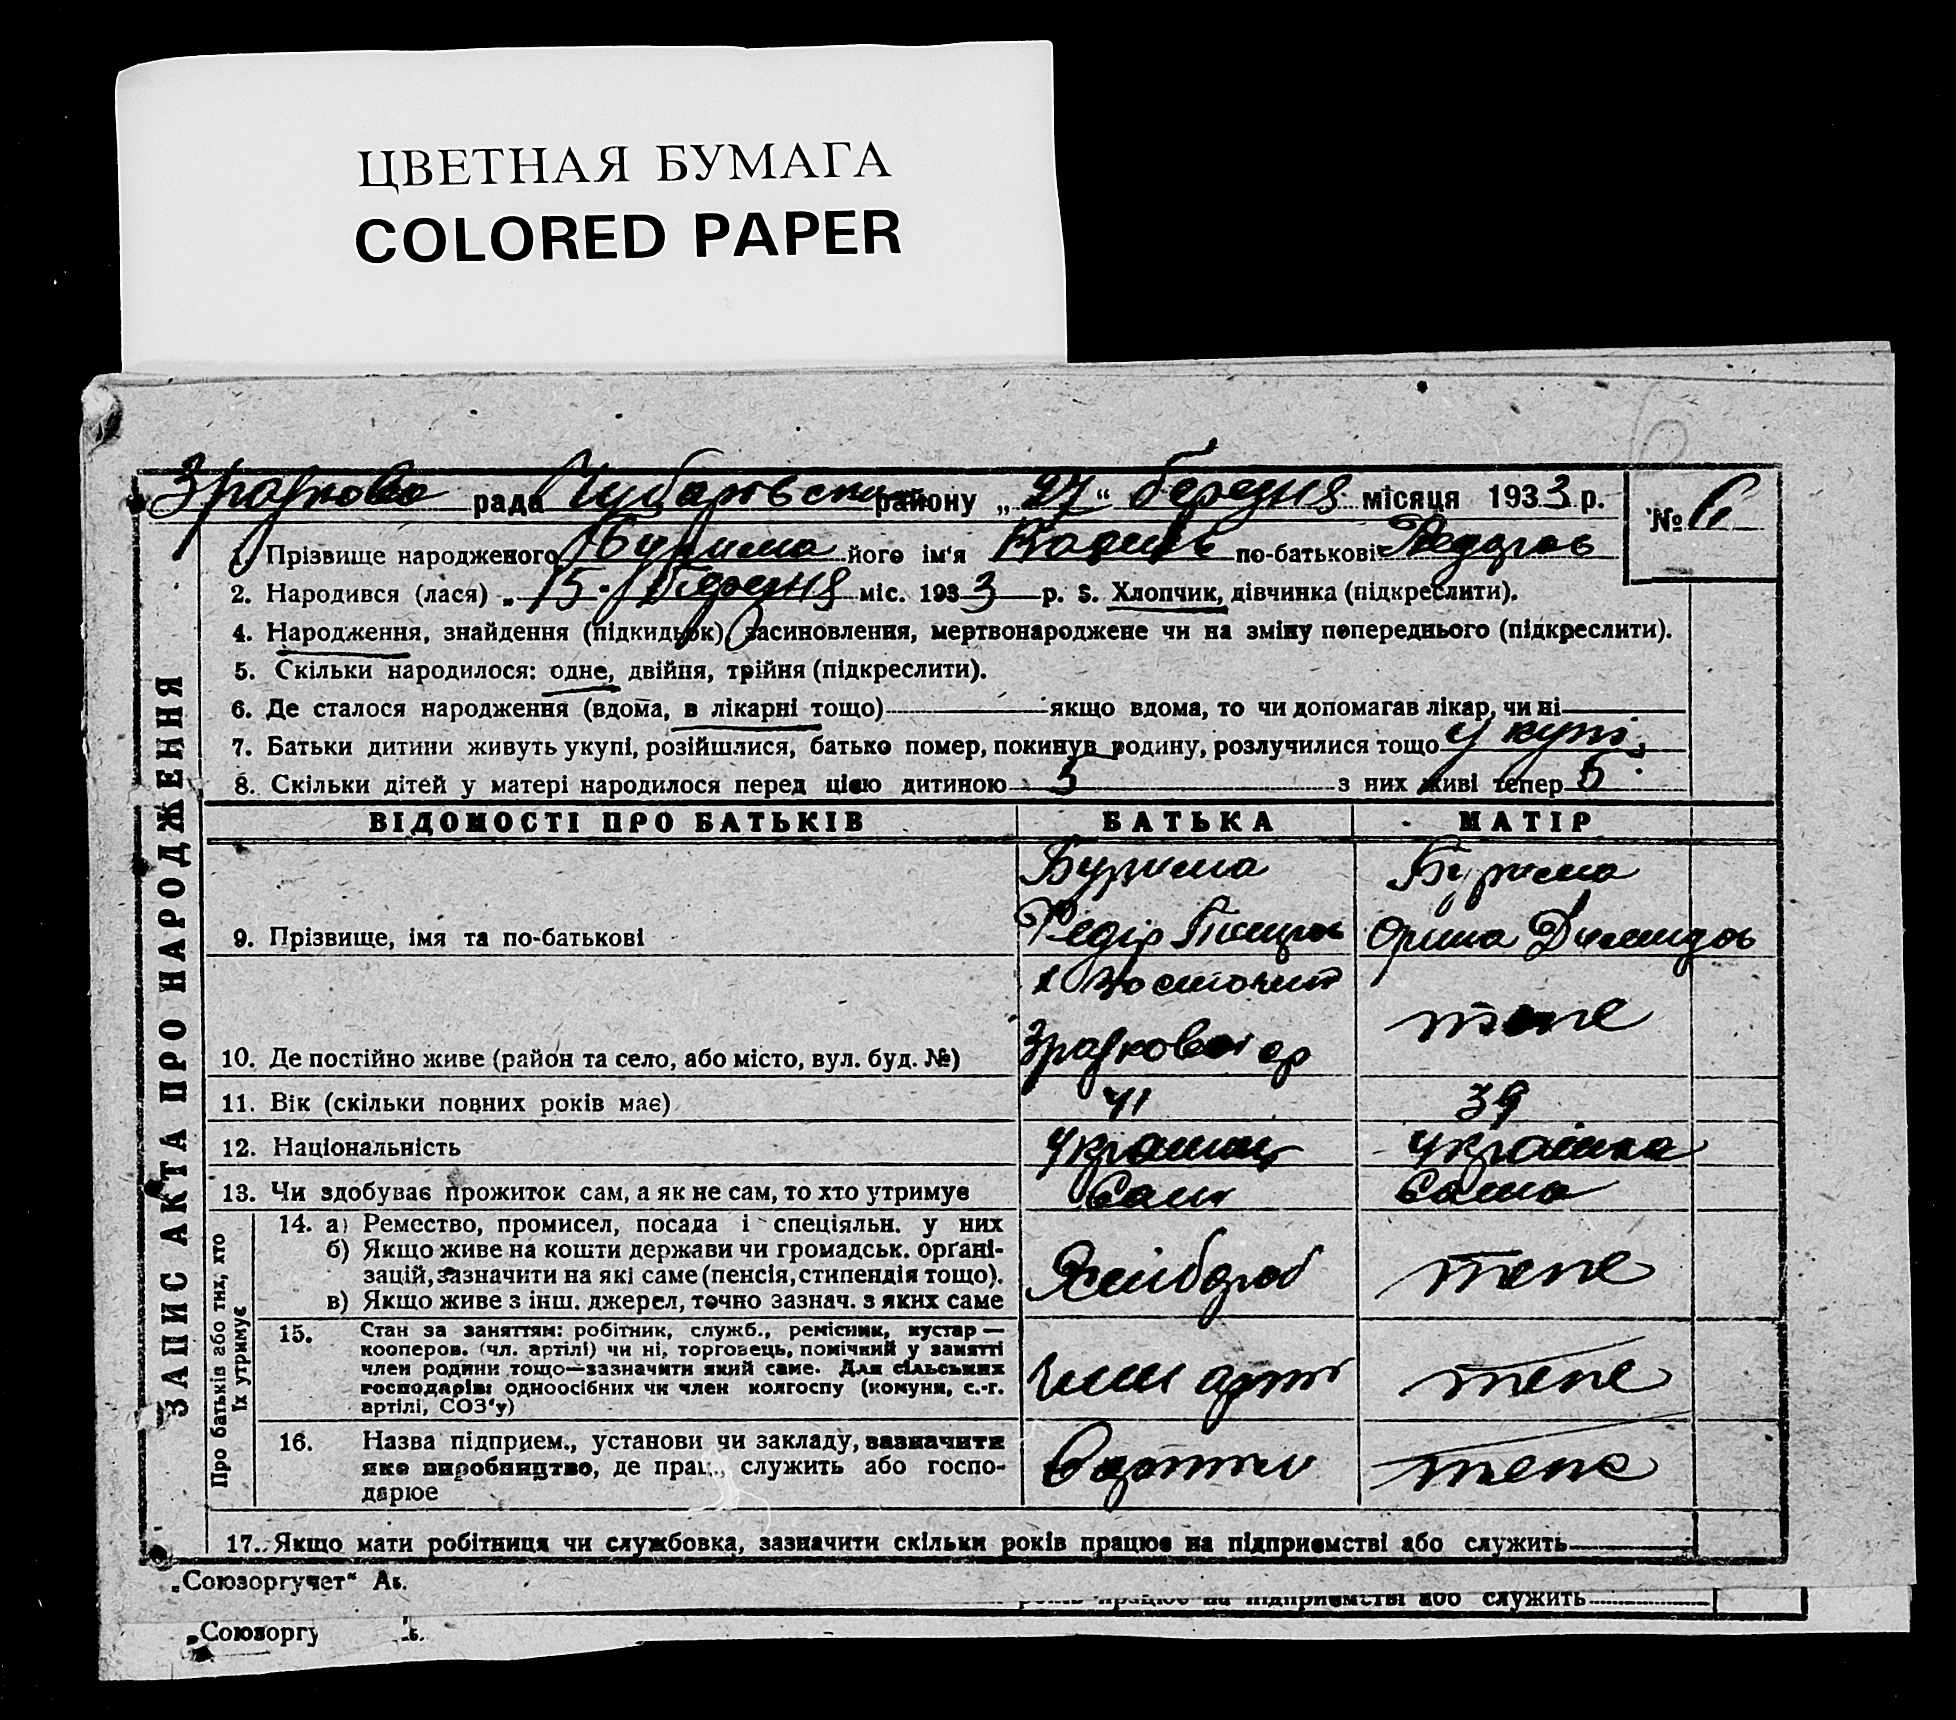 ЦВЕТНАЯ БУМАГА
COLORED PAPER
рада Чубарівськ району „27“ березня місяця 1933 р. № 6
1. Прізвище народженого Бурима його ім'я по-батькові Федоров
2. Народився (лася) „15 березня міс. 1933 р. 3. Хлопчик, дівчинка (підкреслити).
4. Народження, знайдення (підкидьок), засиновлення, мертвонароджене чи на зміну попереднього (підкреслити).
5. Скільки народилося: одне, двійня, трійня (підкреслити).
6. Де сталося народження (вдома, в лікарні тощо) якщо вдома, то чи допомагав лікар, чи ні
7. Батьки дитини живуть укупі, розійшлися, батько помер, покинув родину, розлучилися тощо у купі
8. Скільки дітей у матері народилося перед цією дитиною 5 з них живі тепер 5
ЗАПИС АКТА ПРО НАРОДЖЕННЯ
ВІДОМОСТІ ПРО БАТЬКІВ БАТЬКА МАТІР
Бурима Бурима
9. Прізвище, імя та по-батькові Федір Орина
10. Де постійно живе (район та село, або місто, вул. буд. №) теж
11. Вік (скільки повних років має) 41 39
12. Національність українець українка
13. Чи здобуває прожиток сам, а як не сам, то хто утримує Сам Сама
Про батьків або тих, хто їх утримує
14. а) Ремество, промисел, посада і спеціяльн. у них
б) Якщо живе на кошти держави чи громадськ. орґані-
зацій, зазначити на які саме (пенсія, стипендія тощо).
в) Якщо живе з інш. джерел, точно зазнач. з яких саме
Хлібороб теж
15. Стан за заняттям: робітник, служб., ремісник, кустар —
кооперов. (чл. артілі) чи ні, торговець, помічний у занятті
член родини тощо—зазначити який саме. Для сільських
господарів: одноосібних чи член колгоспу (комуни, с.-г.
артілі, СОЗ'у)
член артілі теж
16. Назва підприєм., установи чи закладу, зазначити
яке виробництво, де прац., служить або госпо-
дарює
В артілі теж
17. Якщо мати робітниця чи службовка, зазначити скільки років працює на підприємстві або служить
„Союзоргучет“ Ак.
років працює на підприємстві або служить
„Союзоргу